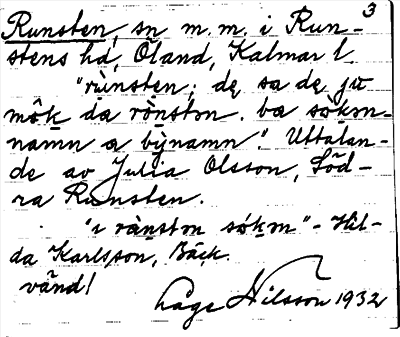 3
Runsten, sn m.m. i Run-
stens hd, Öland, Kalmar l.
"rùnsten; de sa de ju
mô̂k da rònstən. ba sòkən-
namn a bỳnamn." Uttalan-
de av Julia Olsson, Söd-
ra Runsten.
"i rànstən sókən" - Hil-
da Karlsson, Bäck.
vänd!
Låge Nilsson 1932